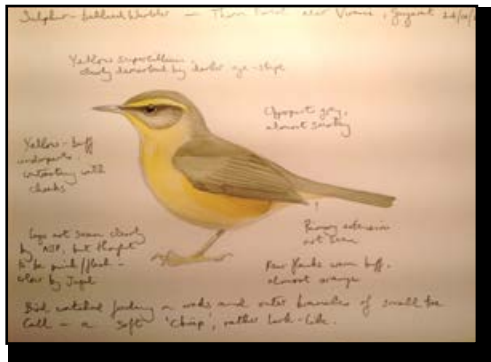 Sulphur-bellied Warbler — Thorn Forest near , Gujarat
Yellow supercilium,
clearly demarcated by darker eye-stripe
Upperparts grey,
almost smoky
Yellow-buff
underparts,
contrasting with
cheeks
Legs not seen clearly
by NSP, but thought
to be pink/flesh-
colour by Jugal
Primary extension
not seen
Rear flanks warm buff,
almost orange
Bird watched feeding on rocks and outer branches of small tree
Call — a soft 'chirp', rather lark-like.